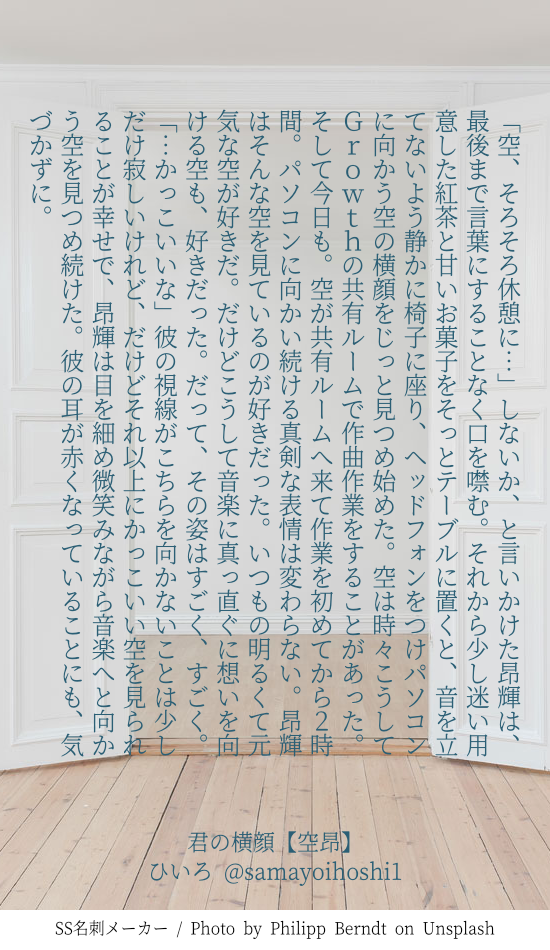 「空、そろそろ休憩に…」しないか、と言いかけた昂輝は、
最後まで言葉にすることなく口を噤む。それから少し迷い用
意した紅茶と甘いお菓子をそっとテーブルに置くと、音を立
てないよう静かに椅子に座り、ヘッドフォンをつけパソコン
に向かう空の横顔をじっと見つめ始めた。空は時々こうして
Ｇｒｏｗｔｈの共有ルームで作曲作業をすることがあった。
そして今日も。空が共有ルームへ来て作業を初めてから２時
間。パソコンに向かい続ける真剣な表情は変わらない。昂輝
はそんな空を見ているのが好きだった。いつもの明るくて元
気な空が好きだ。だけどこうして音楽に真っ直ぐに想いを向
ける空も、好きだった。だって、その姿はすごく、すごく。
「…かっこいいな」彼の視線がこちらを向かないことは少し
だけ寂しいけれど、だけどそれ以上にかっこいい空を見られ
ることが幸せで、昂輝は目を細め微笑みながら音楽へと向か
う空を見つめ続けた。彼の耳が赤くなっていることにも、気
づかずに。
君の横顔【空昂】
ひいろ @samayoihoshi1
SS名刺メーカー / Photo by Philipp Berndt on Unsplash